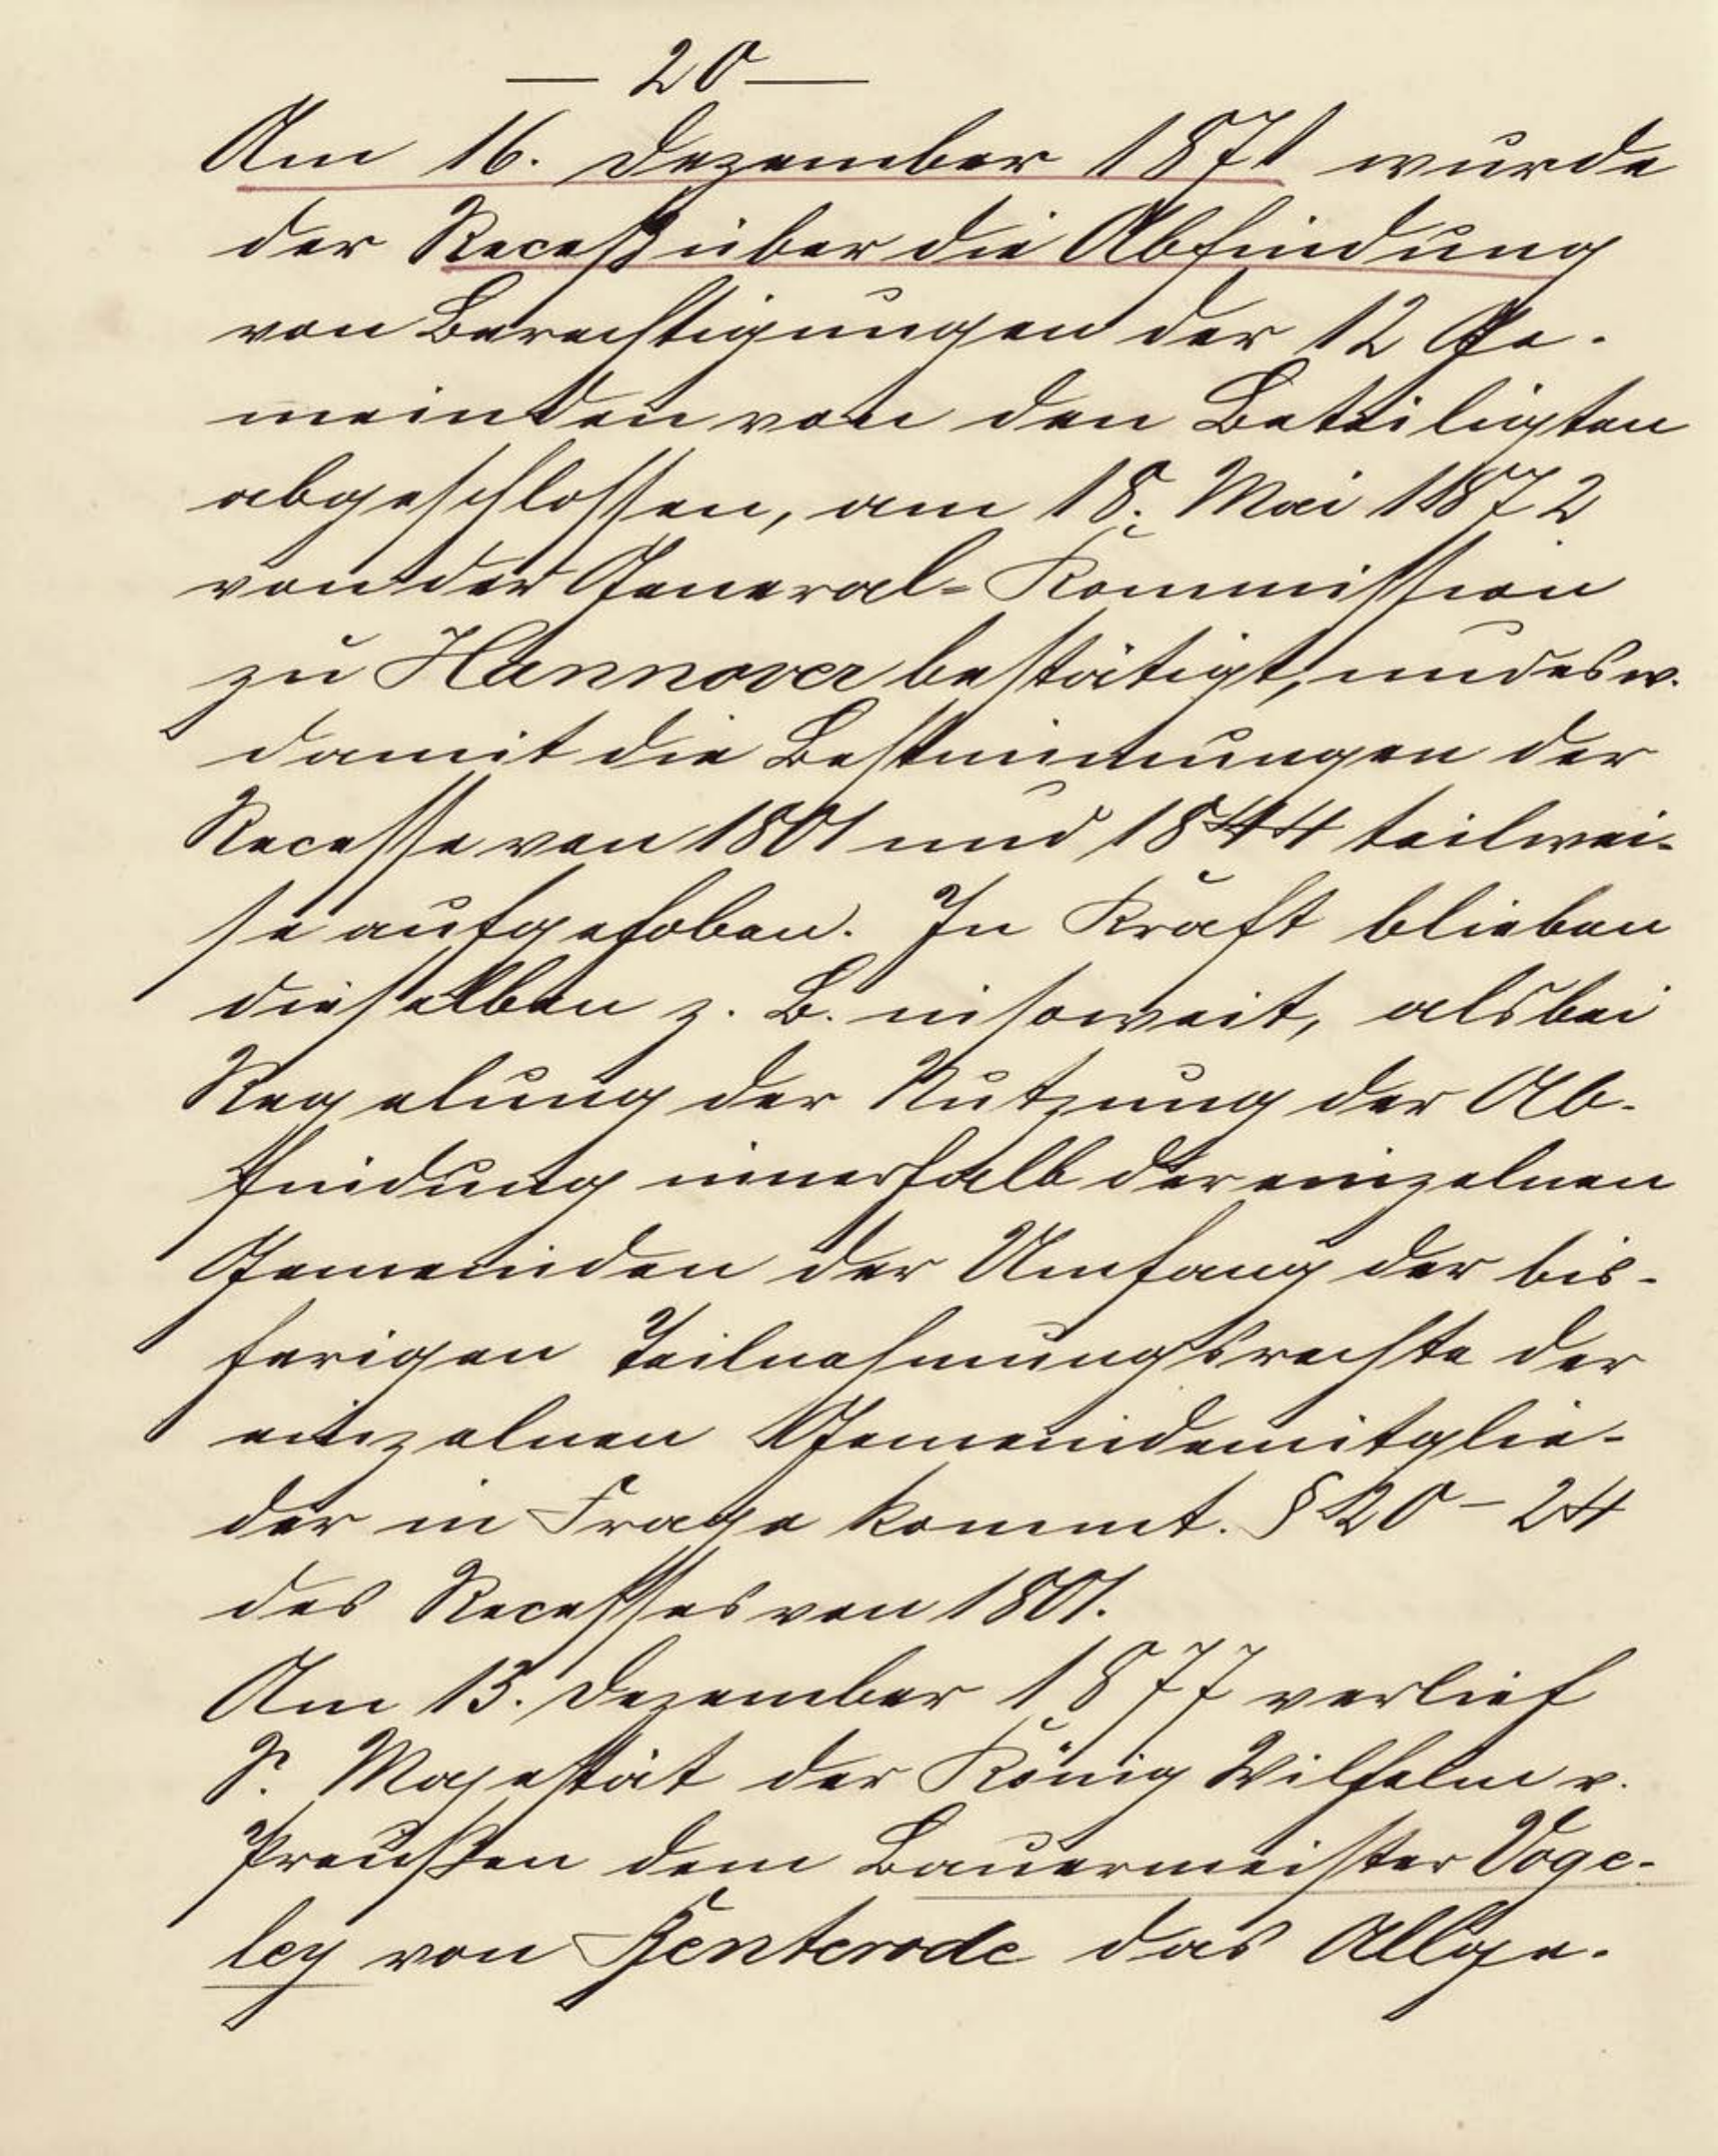 — 20 —
Am 16. Dezember 1871 wurde
der Receß über die Abfindung
von Berechtigungen der 12 Ge-
meinden von den Beteiligten
abgeschlossen, am 18. Mai 1872
von der General-Kommission
zu Hannover bestätigt, und es w.
damit die Bestimmungen der
Recesse von 1801 und 1844 teilwei-
se aufgehoben. In Kraft blieben
dieselben z. B. insoweit, als bei
Regelung der Nutzung der Ab-
findung innerhalb der einzelnen
Gemeinden der Umfang der bis-
herigen Teilnehmungsrechte der
einzelnen Gemeindemitglie-
der in Frage kommt. § 20 – 24
des Recesses von 1801.
Am 13. Dezember 1877 verlieh
S. Majestät der König Wilhelm v.
Preußen dem Bauermeister Voge-
ley von Benterode das Allge-